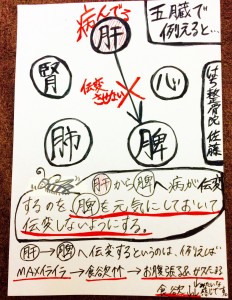 五臓で
例えると…
病んでる
肝
腎
心
伝変
させない
肺
脾
はち整骨院 佐藤
肝から脾へ病が伝変
するのを脾を元気にしておいて
伝変しないようにする。
肝→脾へ伝変するというのは、例えば
MAXイライラ→食欲↑↑→お腹張る&ガスたまる